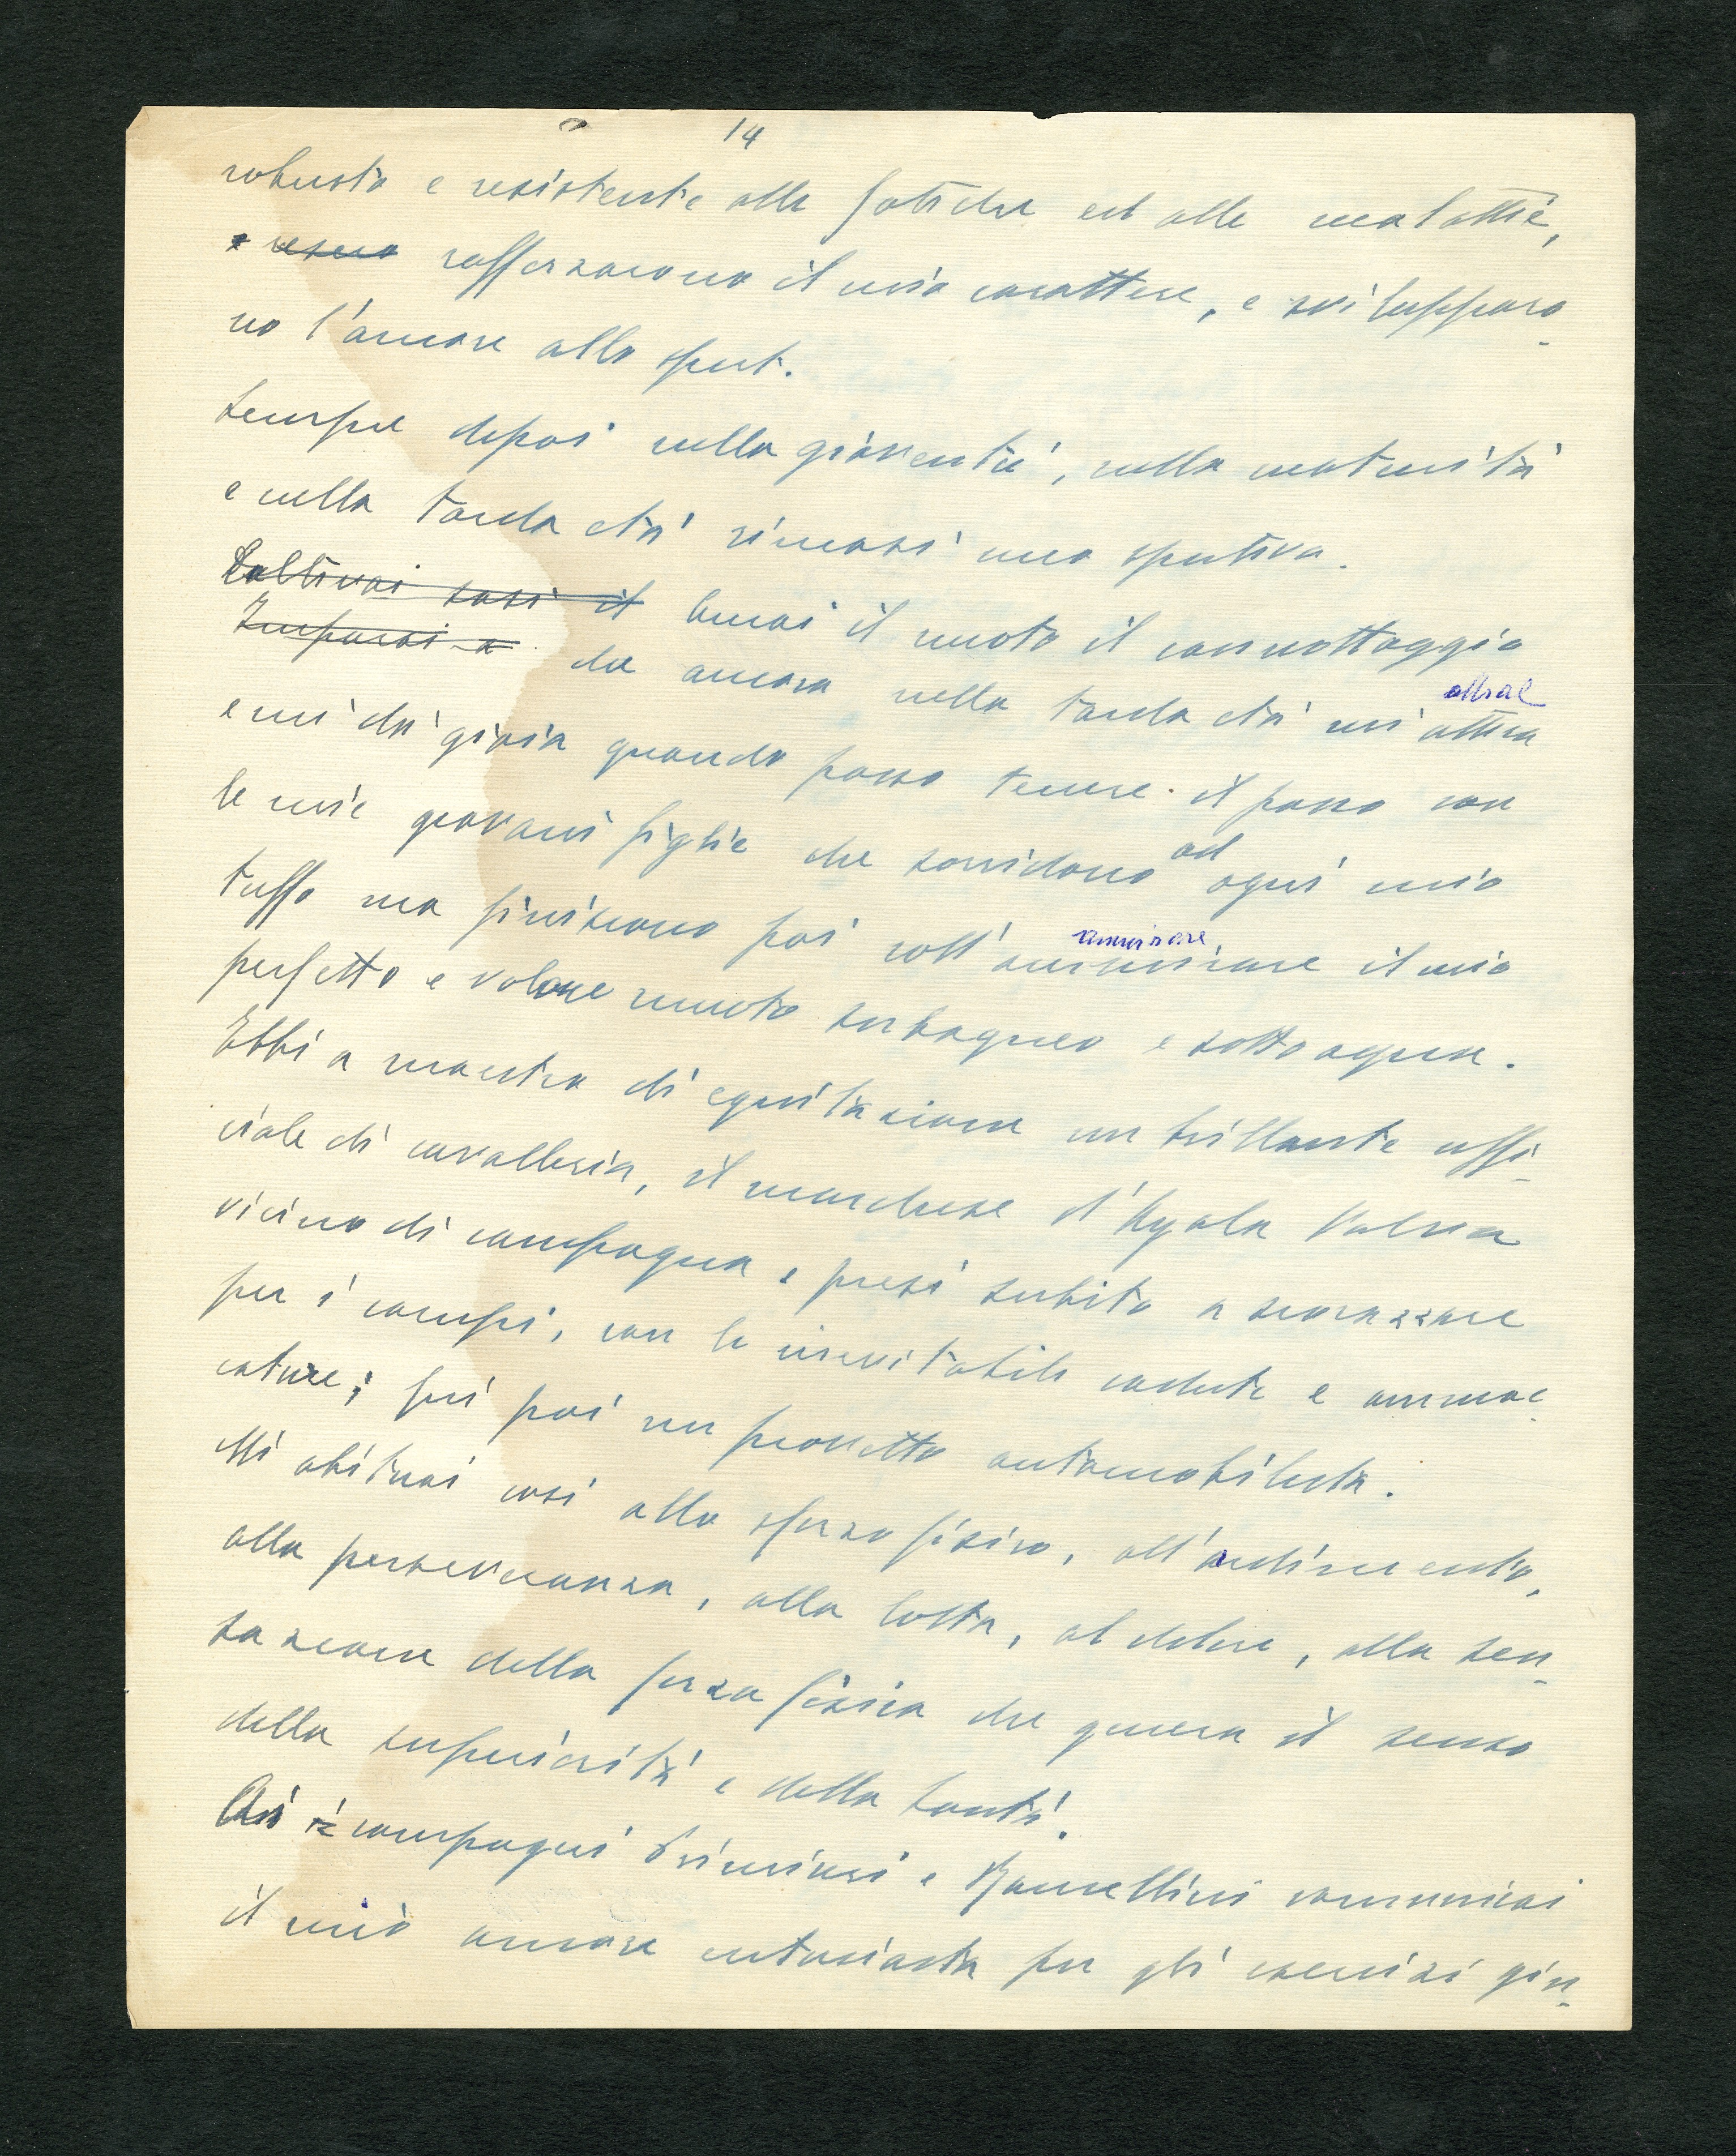 14
robusto e resistente alle fatiche ed alle malattie,
e resero rafforzarono il mio carattere, e sviluppara-
no l'amore allo sport.
Sempre depoi nella gioventù, nella maturità
e nella tarda età rimasi uno sportivo.
Coltivai così il Amai il nuoto il cannottaggio
Imparai a che ancora nella tarda età mi attira
attrae
e mi dà gioia quando posso tenere il passo con
le mie giovani figlie che sorridono ad ogni mio
tuffo ma finiscono poi coll'ammirare il mio
ammirare
perfetto e veloce nuoto subacqueo e sottoacqua.
Ebbi a maestro di equitazione un brillante uffi-
ciale di cavalleria, il marchese d'Ayala Valva
vicino di campagna e presi subito a scorazzare
per i campi, con le inevitabili cadute e ammac-
cature; fui poi un provetto automobilista.
Mi abituai così allo sforzo fisico, all'ardimento,
alla perseveranza, alla lotta, al dolore, alla sen-
sazione della forza fisica che genera il senso
della superiorità e della bontà.
Ai compagni Criminisi e comunicai
il mio amore entusiasta per gli esercizi gin-